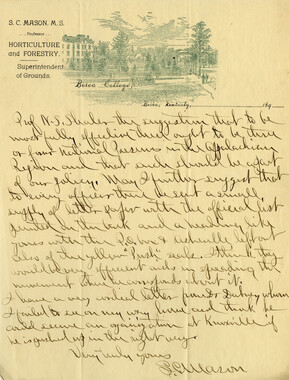 S. C. MASON, M. S.
Professor
HORTICULTURE
and FORESTRY.
Superintendent
of Grounds.
Berea College
Berea, Kentucky, 189
Prof N. S. Shaler the suggestion that to be
most fully effective there ought to be three
or four National Reserves in the Appalachian
Region and that such should be a part
of our policy. May I further suggest that
to every officer there be sent a small
supply of letter paper with the official list
printed in the back and a heading like
yours with the &
also of the yellow seals. I think they
would be very efficient aids in spreading the
movement when he corresponds about it.
I have a very cordial letter from Dr whom
I failed to see on my way home and think he
could secure an organization at Knoxville if
he is pushed up in the right way.
Very truly yours
S. C. Mason